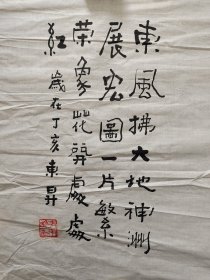 東風拂大地神洲
展宏圖一片繁
荣象花開處處
紅
歲在丁亥東昇